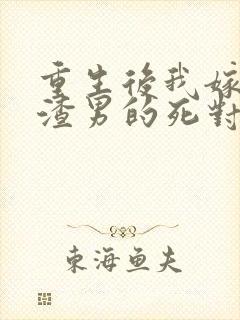 重生後我嫁
渣男的死對
東海鱼夫